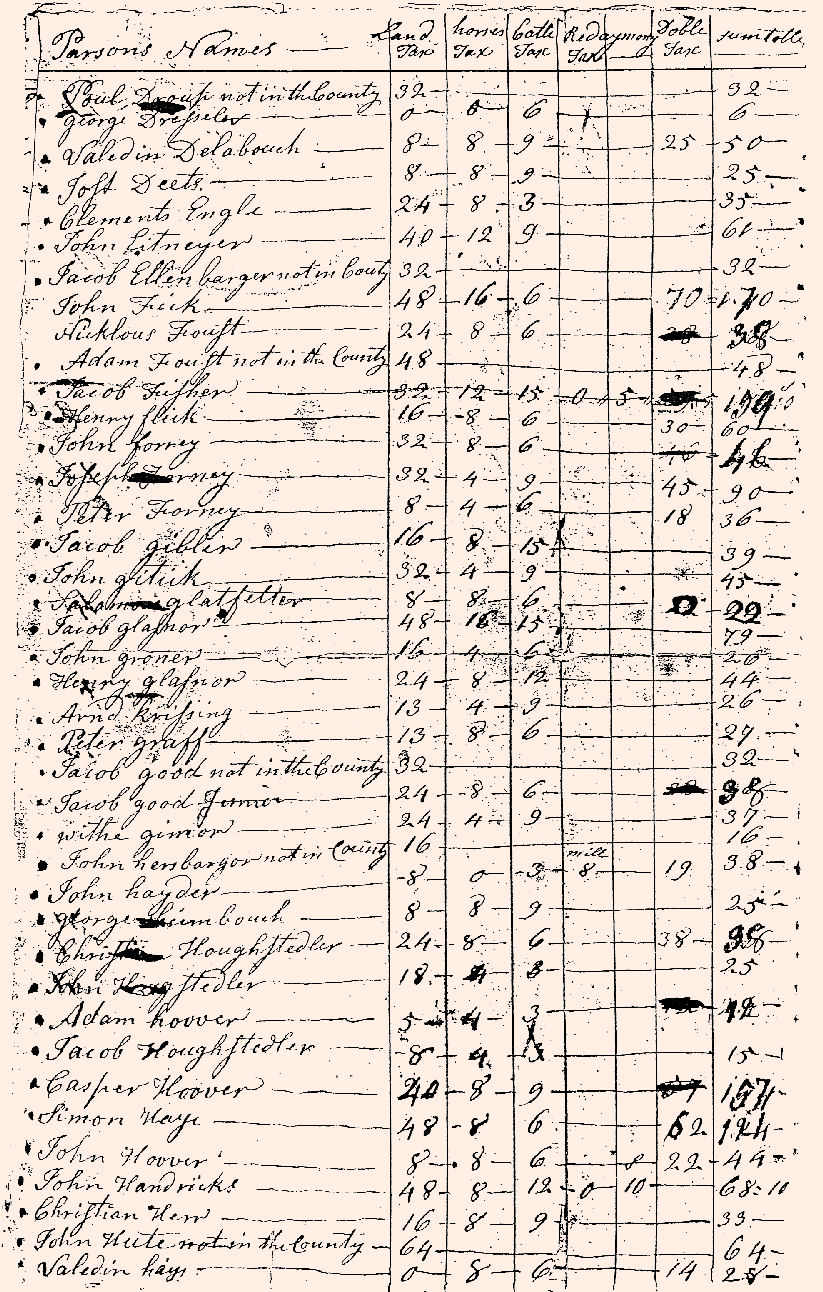 Parsons Names Land Tax horses Tax Catle Tax Redaymony Tax Doble Tax sumtotle
Poul not in the County 32 32
george Dresseler 0 0 6 6
Valedin Delabouch 8 8 9 25 50
Jost Deets 8 8 9 25
Clements Engle 24 8 3 35
John Litneyer 40 12 9 61
Jacob Ellenbarger not in Couty 32 32
John Fick 48 16 6 70 1.70
Nicklous Foust 24 8 6 38
Adam Foust not in the County 48 48
Jacob Fisher 32 12 15 0 5
Henry flick 16 8 6 30 60
John forney 32 8 6 46 46
Joseph 32 4 9 45 90
Peter Forney 8 4 6 18 36
Jacob gibler 16 8 15 39
John gitick 32 4 9 45
glatfelter 8 8 6 22 22
Jacob glasnor 48 16 15 79
John groner 16 4 6 26
Henry glasnor 24 8 12 44
Arnd Krissing 13 4 9 26
Peter graff 13 8 6 27
Jacob good not in the County 32 32
Jacob good Junior 24 8 6 38
withe gimor 24 4 9 37
John hersbargor not in County 16 16
John hayder 8 0 3 mill 8 19 38
george 8 8 9 25
Houghstedler 24 8 6 38 38
John 18 4 3 25
Adam hoover 5 4 3 12
Jacob Houghstedler 8 4 3 15
Casper Hoover 40 8 9 57
Simon Haye 48 8 6 62 124
John Hoover 8 8 6 8 22 44
John Handricks 48 8 12 0 10 68:10
Christian Herr 16 8 9 33
John Huite not in the County 64 64
Valedin hays 0 8 6 14 28